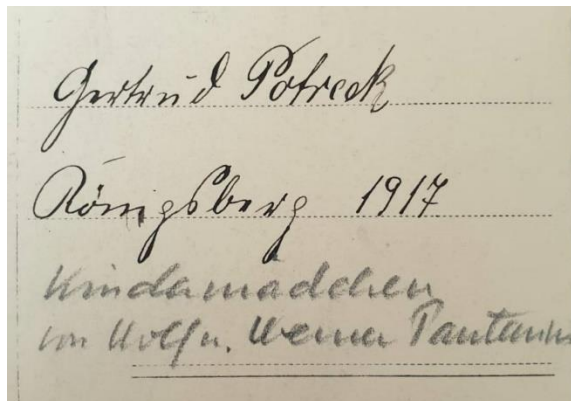 Gertrud Potreck
Königsberg 1917
Kindamädchen
von Wolf u. Werner